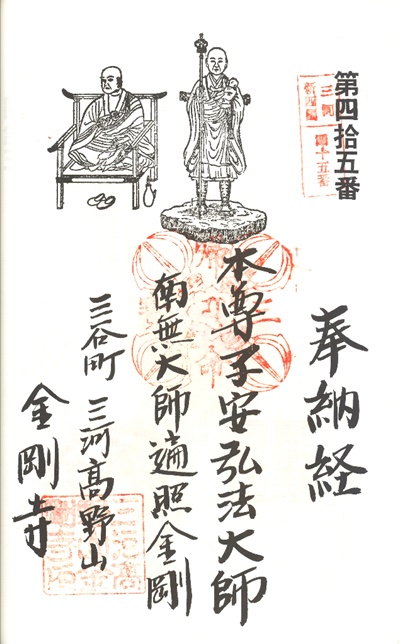 第四拾五番
三河
新四国
四十五番
奉納経
本尊子安弘法大師
南無大師遍照金剛
三谷町 三河高野山
金剛寺